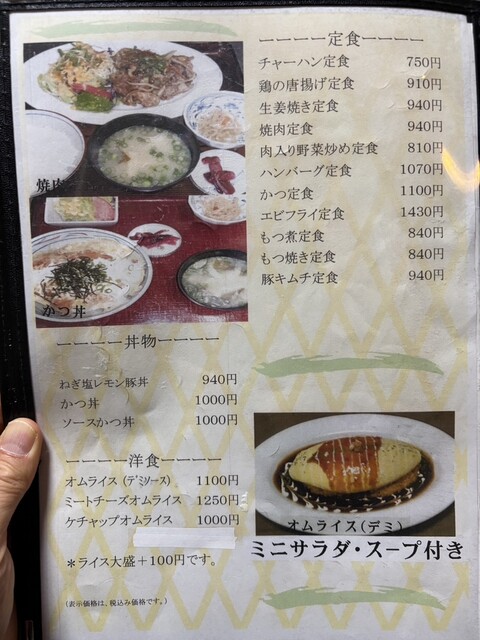 ーーーー定食ーーーー
チャーハン定食 750円
鶏の唐揚げ定食 910円
生姜焼き定食 940円
焼肉定食 940円
肉入り野菜炒め定食 810円
ハンバーグ定食 1070円
かつ定食 1100円
エビフライ定食 1430円
もつ煮定食 840円
もつ焼き定食 840円
豚キムチ定食 940円
焼肉
かつ丼
ーーーー丼物ーーーー
ねぎ塩レモン豚丼 940円
かつ丼 1000円
ソースかつ丼 1000円
ーーーー洋食ーーーー
オムライス (デミソース) 1100円
ミートチーズオムライス 1250円
ケチャップオムライス 1000円
＊ライス大盛＋100円です。
(表示価格は、税込み価格です。)
オムライス(デミ)
ミニサラダ・スープ付き